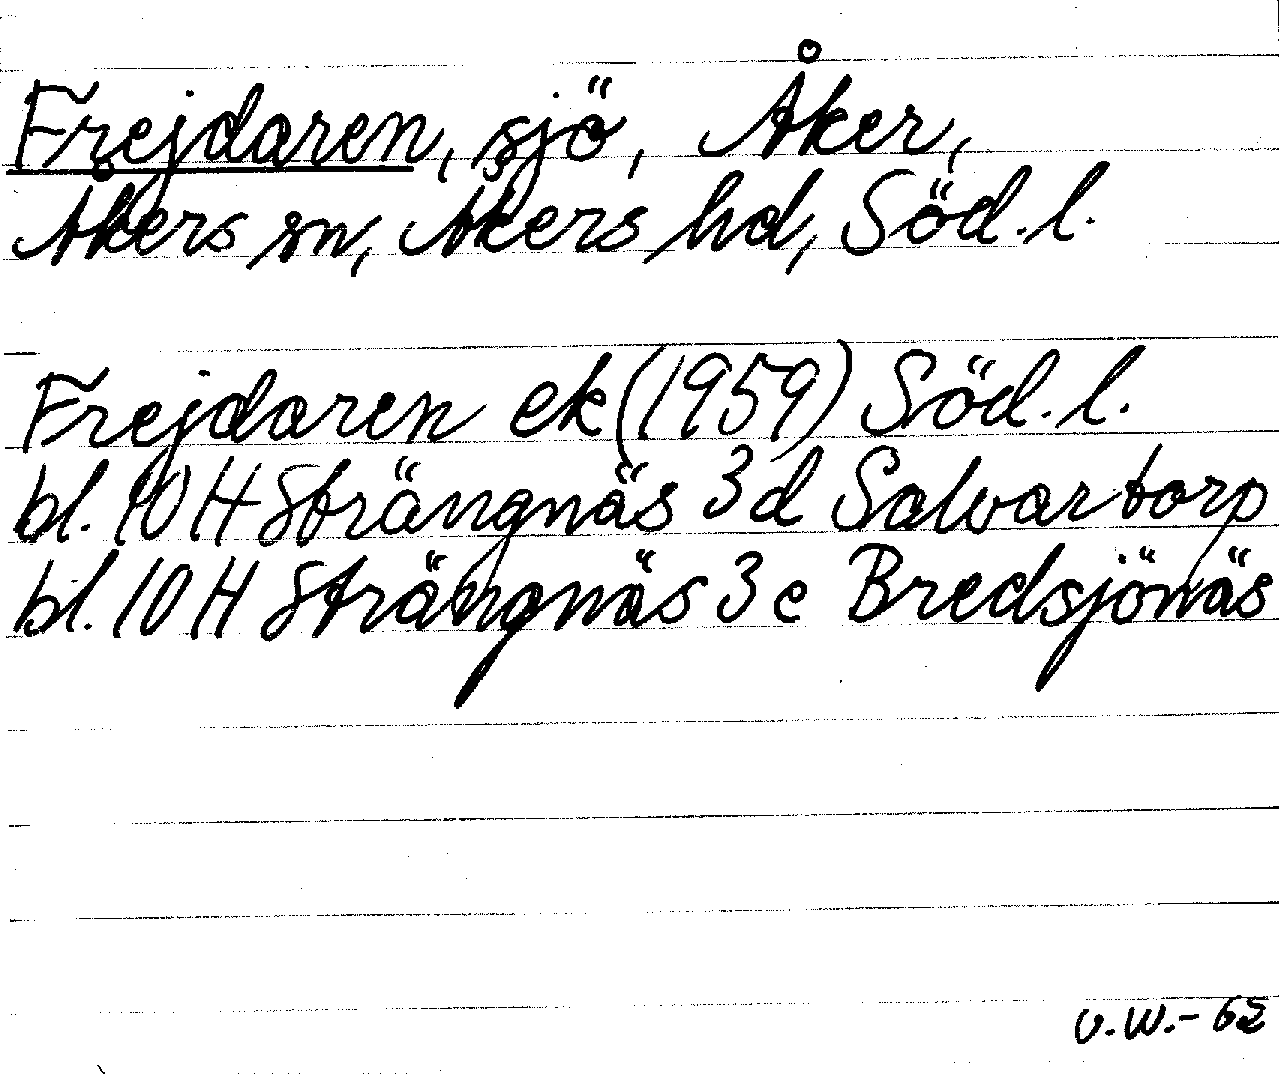 Frejdaren, sjö, Åker,
Åkers sn, Åkers hd, Söd. l.
Frejdaren ek (1959) Söd. l.
bl. 10 H Strängnäs 3 d Salvartorp
bl. 10 H Strängnäs 3 e Bredsjönäs
v.W.- 62